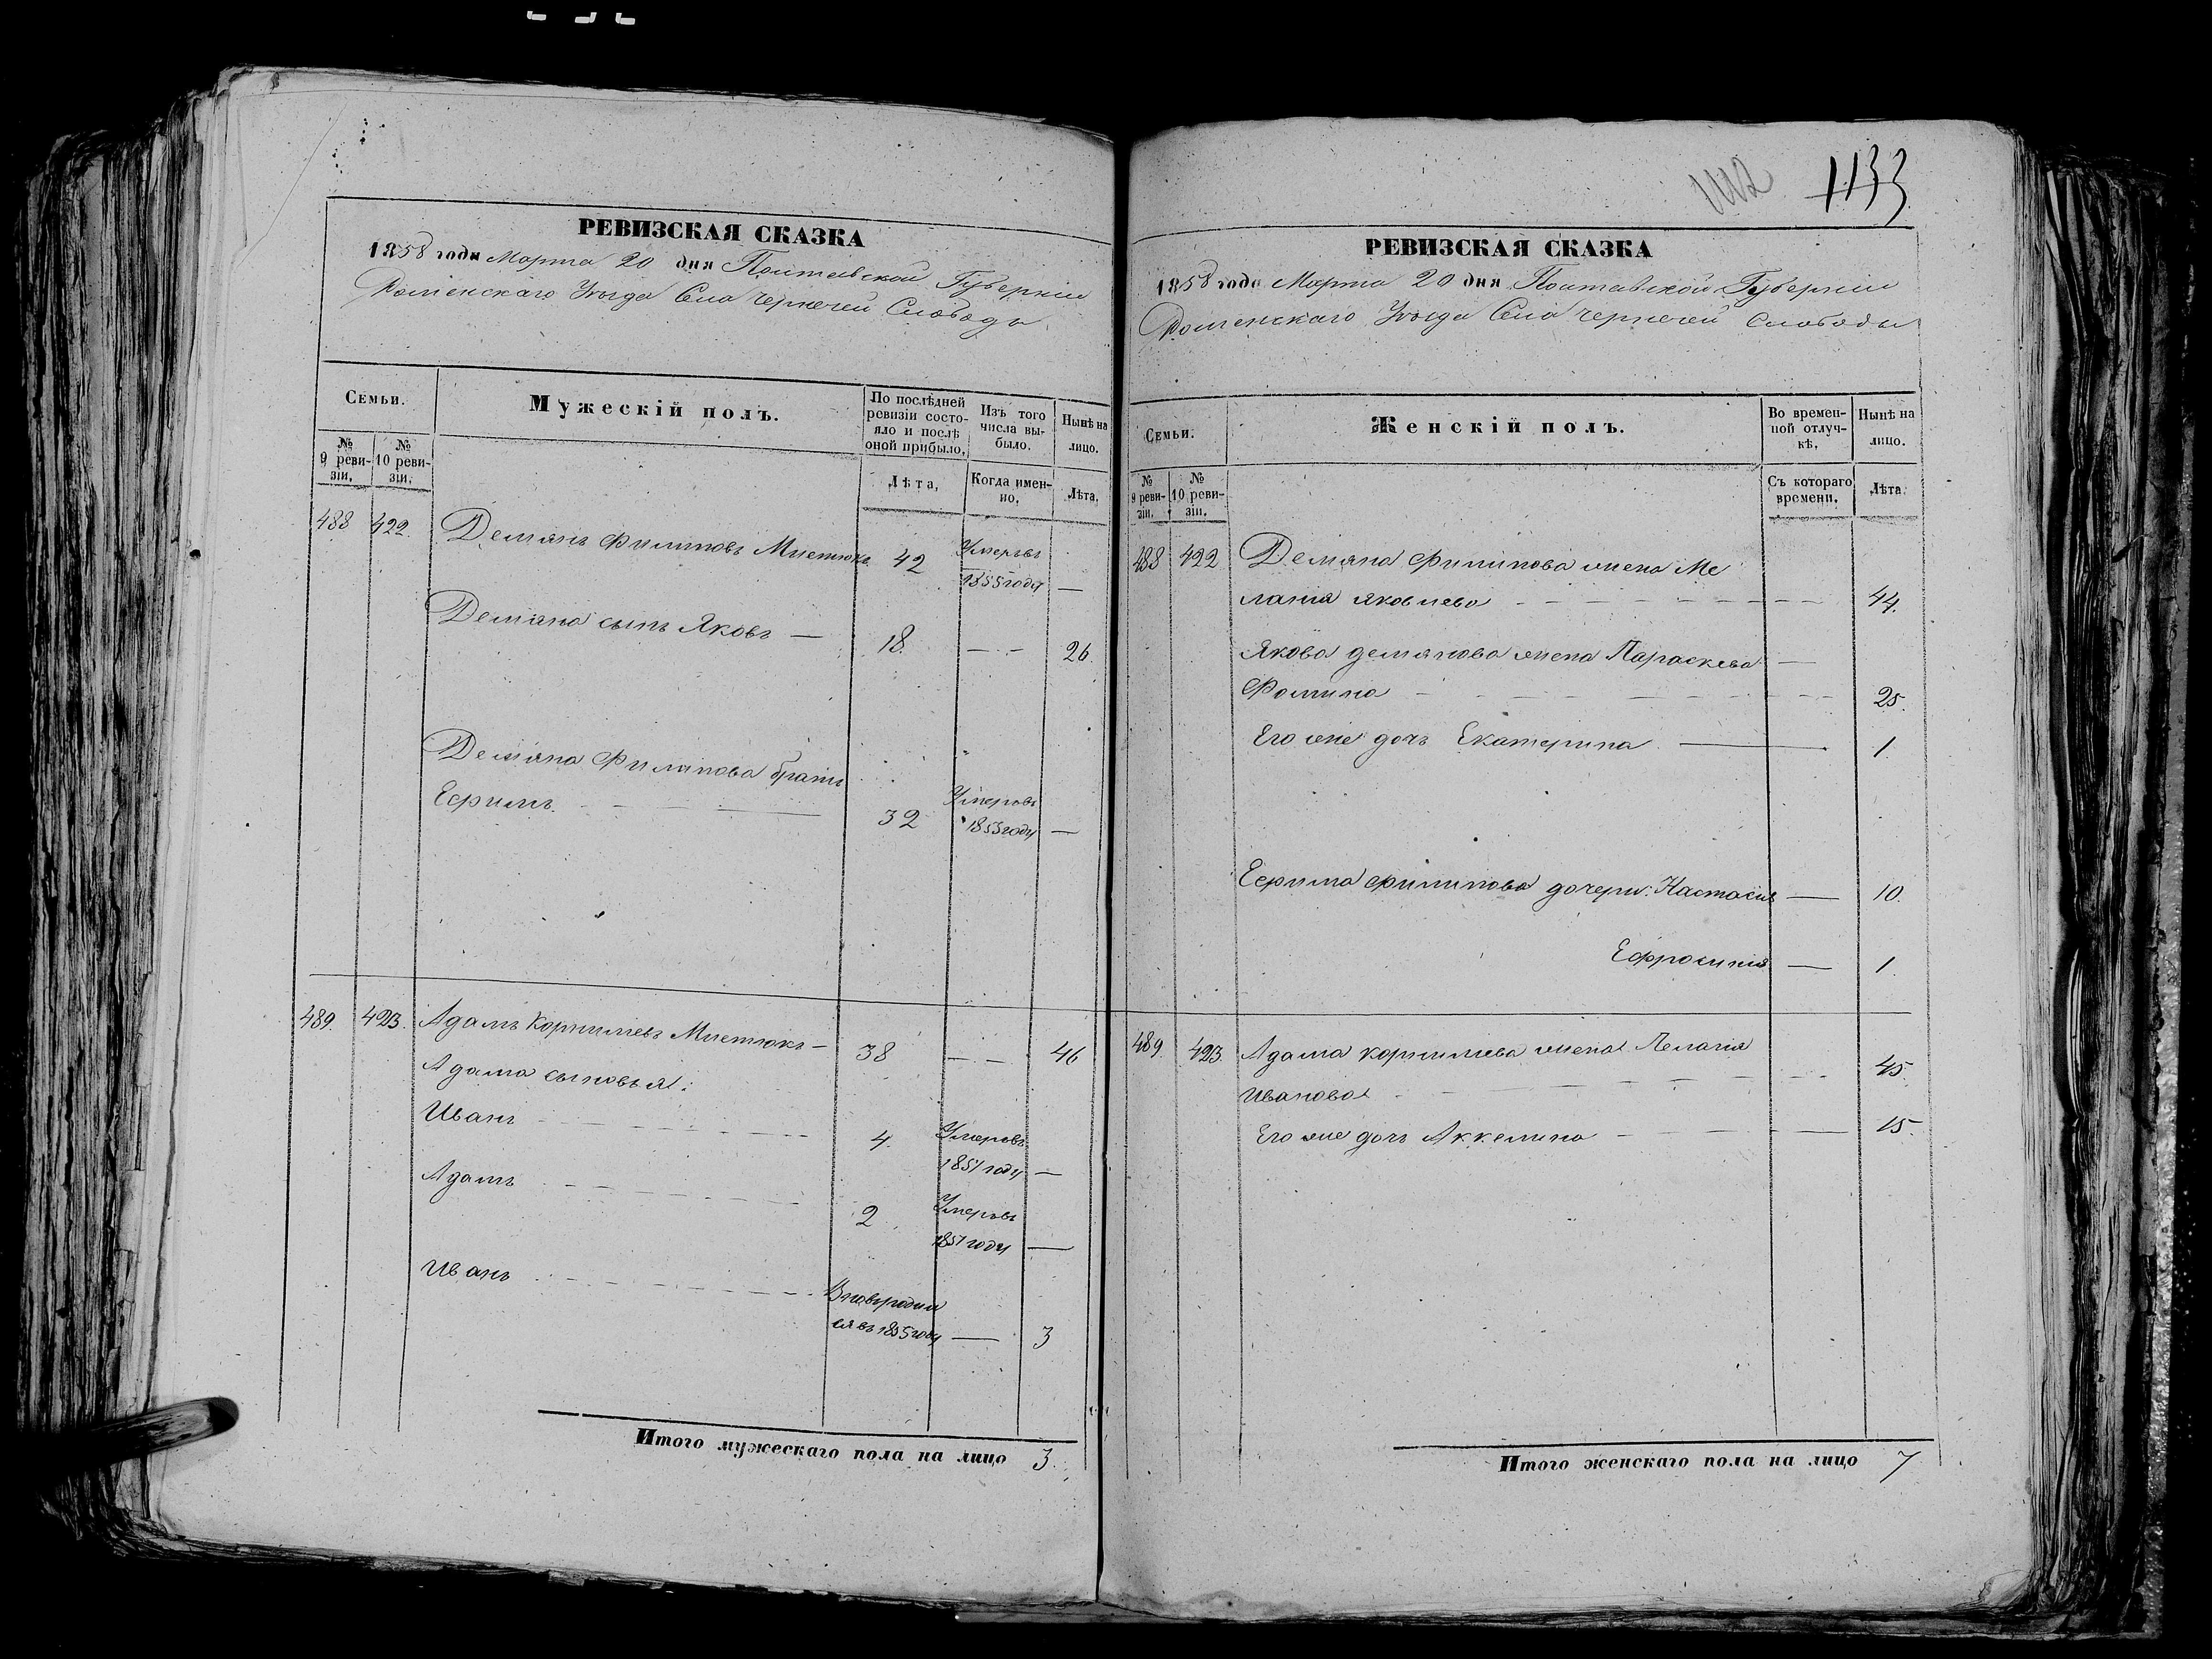 1112 1133
РЕВИЗСКАЯ СКАЗКА
1858 года Марта 20 дня Полтавской Губерніи
Роменскаго Уѣзда Села Чернечей Слободы
Семьи.
№ 9 ревизіи.
№ 10 ревизіи.
Мужескій полъ.
По послѣдней ревизіи состояло и послѣ оной прибыло.
Изъ того числа выбыло.
Нынѣ на лицо.
Лѣта.
Когда именно.
Лѣта.
488 422. Демянъ Филиповъ Мнетюкъ 42 Умеръ въ
1855 году —
Демяна сынъ Яковъ — 18. — — 26.
Демяна Филипова братъ
Ефимъ — 32 Умеръ въ
1853 году —
489. 423. Адамъ Корнилиевъ Мнетюкъ — 38 — — 46
Адама сыновья:
Иванъ 4. Умеръ въ
1851 году —
Адамъ 2 Умеръ въ
1851 году —
Иванъ Вновь родил
ся въ 1855 году — 3
Итого мужескаго пола на лицо 3.
РЕВИЗСКАЯ СКАЗКА
1858 года Марта 20 дня Полтавской Губерніи
Роменскаго Уѣзда Села Чернечей Слободы
Семьи.
№ 9 ревизіи.
№ 10 ревизіи.
Женскій полъ.
Во временной отлучкѣ.
Нынѣ на лицо.
Съ котораго времени.
Лѣта.
488 422 Демяна Филипова жена Ме
ланія Яковлева — 44.
Якова Демянова жена Параскева —
Фомина — 25.
Его же дочь Екатерина — 1.
Ефима Филипова дочери: Настасія — 10.
Ефросинія — 1.
489. 423 Адама Корнилиева жена Пелагія
Иванова — 45.
Его же дочь Аккелина — 15.
Итого женскаго пола на лицо 7